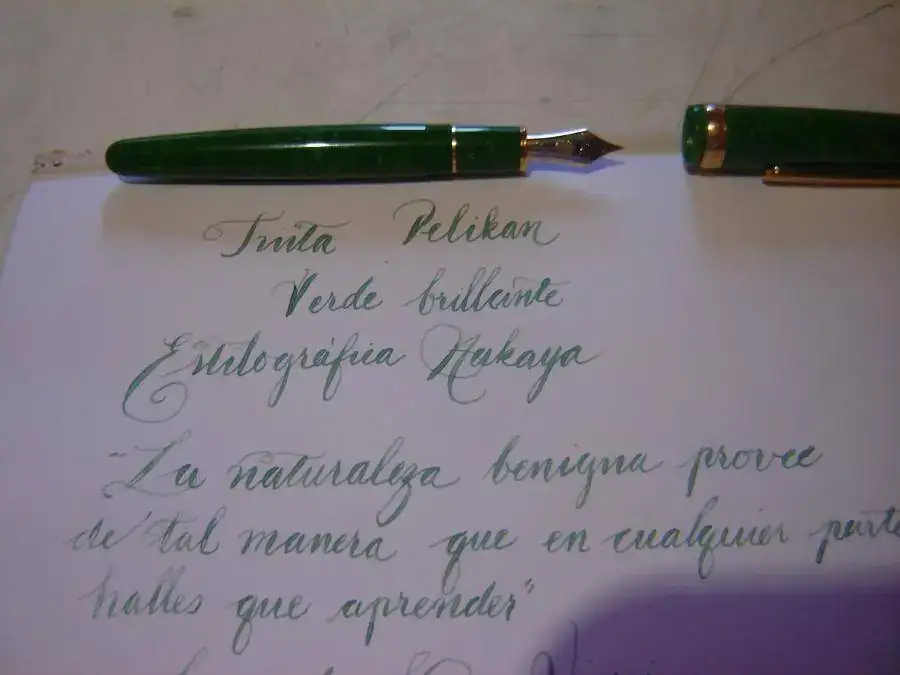 Tinta Pelikan
Verde brillante
Estilográfica Hakaya
"La naturaleza benigna provee
de tal manera que en cualquier parte
halles que aprender"